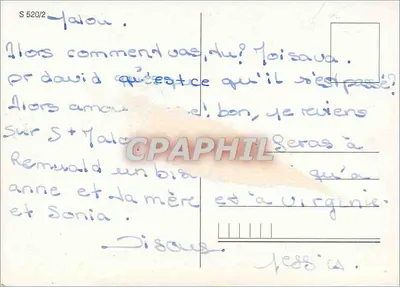 S 520/2
Malou.
Alors comment vas, tu? Moi sava.
pr david qu'est ce qu'il s'est passé?
Alors amou et bon, je reviens
sur St Malo Seras à
CPAPHIL
Romuald un bis qu'a
anne et ta mère et à virginie
et Sonia.
Disous.
Jessica